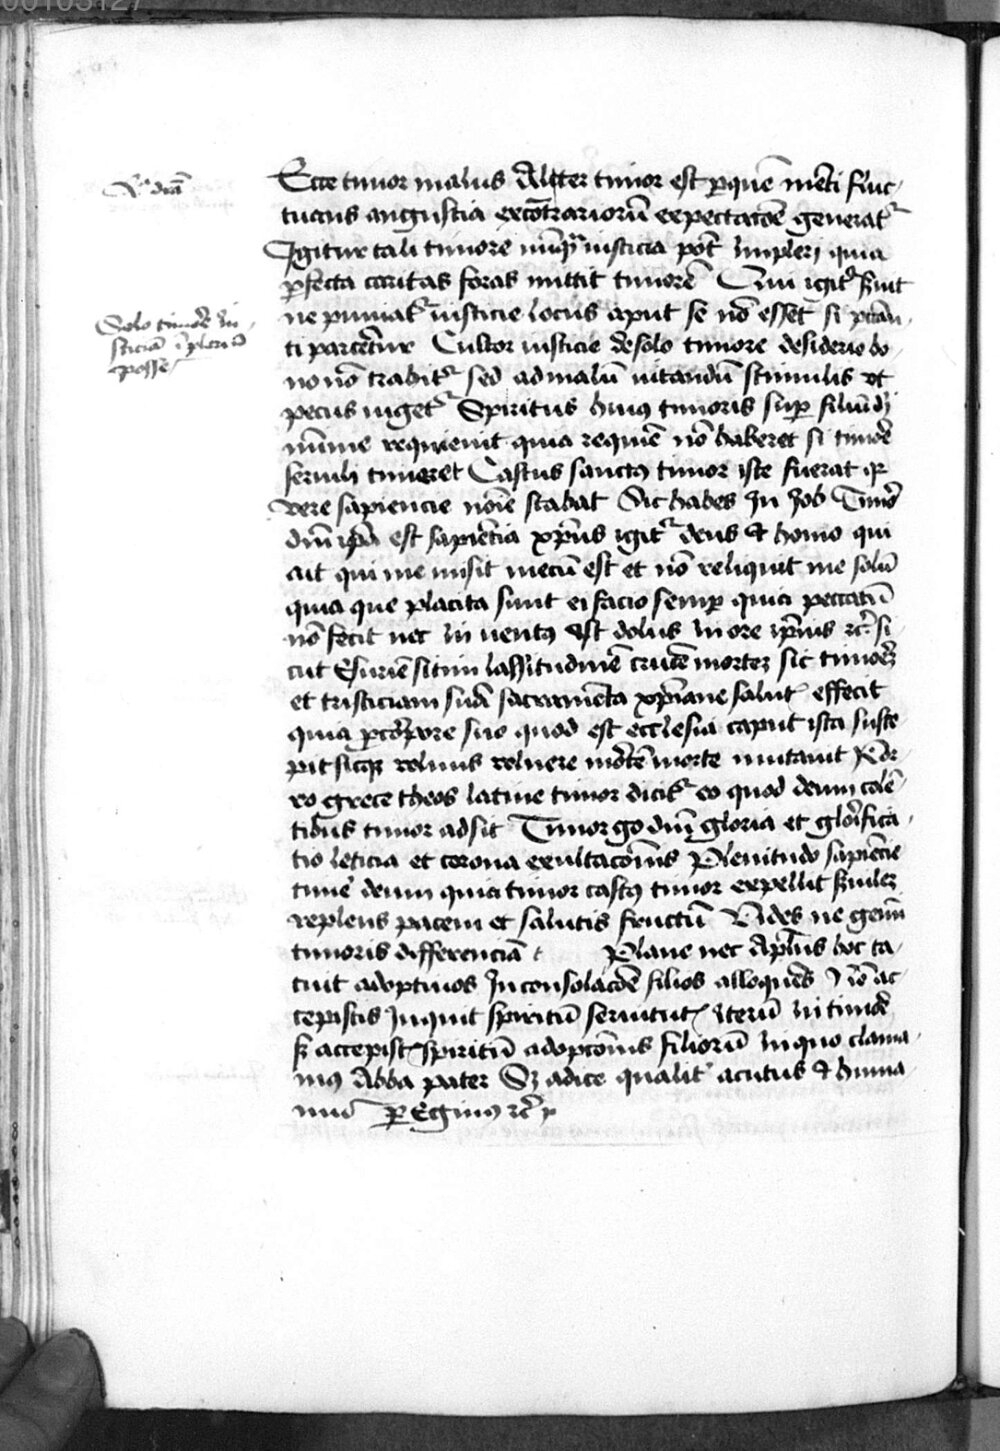 00103127
Ecce timor malus Aliter timor est ꝑ quē menti fluc-
tuans angustia ex cōtrariorū expectacōe generatᷣ
Igitur tali timore nūqᷓ iusticia pōt Impleri quia
ꝑfecta caritas foras mittit timorē Cum igitᷣ
ne puniatᷣ iusticie locus aput se nō esset si pctān-
ti parcerēt Cultor iusticie de solo timore desiderio bo-
no nō trahitᷣ sed ad malū uitandū stimulis ut
pecus urgetᷣ Spiritus huiꝰ timoris suꝑ filiū dei
minime requieuit quia requiē nō haberet si timōe
seruili timeret Castus sanctꝰ timor iste fuerat
vere sapiencie noīe stabat Sic habes In Job Timor
dnī ip̄a est sapiēcia xp̄us igitᷣ deus et homo qui
ait qui me misit mecū est et nō reliquit me solū
quia que placita sunt ei facio semꝑ quia peccatū
nō fecit nec Inuentꝰ est dolus In ore ip̄ius rc̄ si-
cut Esuriē sitim lassitudinē crucē mortez sic timorez
et tristiciam suā sacramēta xp̄iane salutꝭ effecit
quia ꝓ corꝑore suo quod est ecclesia caput ista susce-
pit sicqꝫ velimus vel mortē morte mutauit Por-
ro grece theos latine timor dicitᷣ eo quod deum colē-
tibus timor adsit Timor go dnī gloria et glorifica-
tio leticia et corona exultacōnis Plenitudo sapiēcie
timē deum quia timor castꝰ timor expellit seruilez
replens pacem et salutis fructū Vides ne gemī
timoris differenciā Plane nec Aplus hoc ta-
cuit adoptiuos In consolacōe filios alloquēs Nō ac-
cepistis Inquit spiritū seruitutꝭ Iterū In timōe
sꝫ accepistꝭ spiritū adopcōnis filiorū In quo clama-
mꝰ Abba pater Sꝫ adice qualitᷣ acutus et huma-
nus
Solo timore Iu-
sticiā īpleri nō
posse